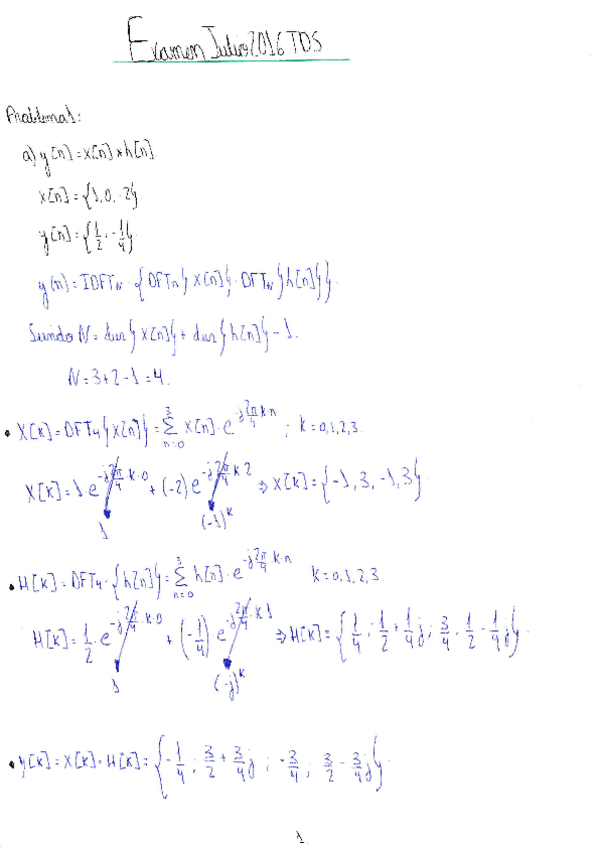 Examen Julio 2016 TDS
Problema 1:
a) y[n] = x[n] * h[n]
x[n] = {1, 0, -2}
y[n] = {1/2, -1/4}
y[n] = IDFT_N {DFT_N{x[n]} · DFT_N{h[n]}}.
Siendo N = dur{x[n]} + dur{h[n]} - 1.
N = 3+2-1 = 4.
• X[k] = DFT_4{x[n]} = Σ_{n=0}^{3} x[n] · e^{-j 2π/4 k·n} ; k = 0,1,2,3.
X[k] = 1 e^{-j 2π/4 · k·0} + (-2) e^{-j 2π/4 k·2} ⇒ X[k] = {-1, 3, -1, 3}
1 (-1)^k
• H[k] = DFT_4 · {h[n]} = Σ_{n=0}^{3} h[n] · e^{-j 2π/4 · k·n} k = 0,1,2,3
H[k] = 1/2 · e^{-j 2π/4 · k·0} + (-1/4) e^{-j 2π/4 · k·1} ⇒ H[k] = {1/4 ; 1/2 + 1/4 j ; 3/4 , 1/2 - 1/4 j}.
1 (-j)^k
• Y[k] = X[k] · H[k] = {-1/4 ; 3/2 + 3/4 j ; -3/4 ; 3/2 - 3/4 j}.
1